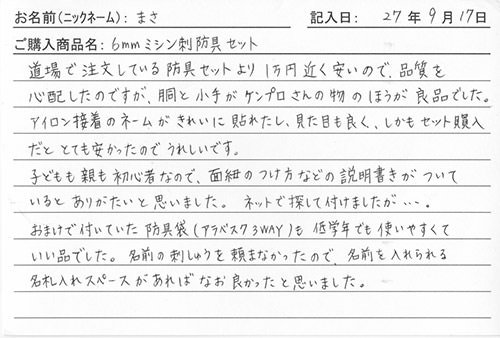 お名前(ニックネーム): まさ 記入日: 27年9月17日
ご購入商品名: 6mmミシン刺防具セット
道場で注文している防具セットより1万円近く安いので、品質を
心配したのですが、胴と小手がケンプロさんの物のほうが良品でした。
アイロン接着のネームがきれいに貼れたし、見た目も良く、しかもセット購入
だととても安かったのでうれしいです。
子どもも親も初心者なので、面紐のつけ方などの説明書きがついて
いるとありがたいと思いました。ネットで探して付けましたが…。
おまけで付いていた防具袋(アラベスク3WAY)も低学年でも使いやすくて
いい品でした。名前の刺しゅうを頼まなかったので、名前を入れられる
名札入れスペースがあればなお良かったと思いました。